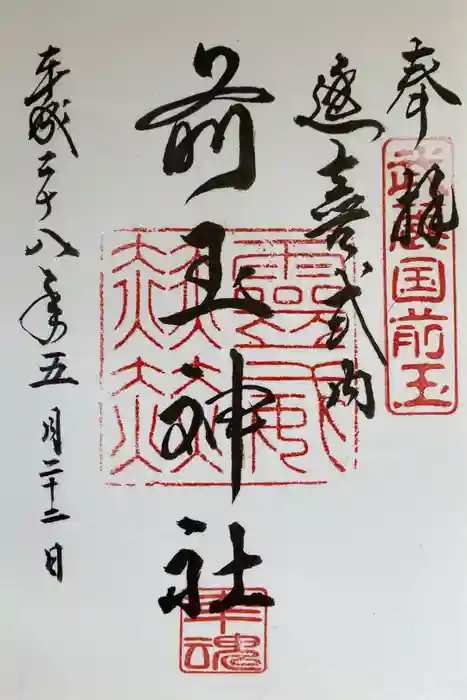 奉拝
武蔵国前玉
延喜式内
前玉神社
靈威
赫赫
幸魂
平成二十八年五月二十二日